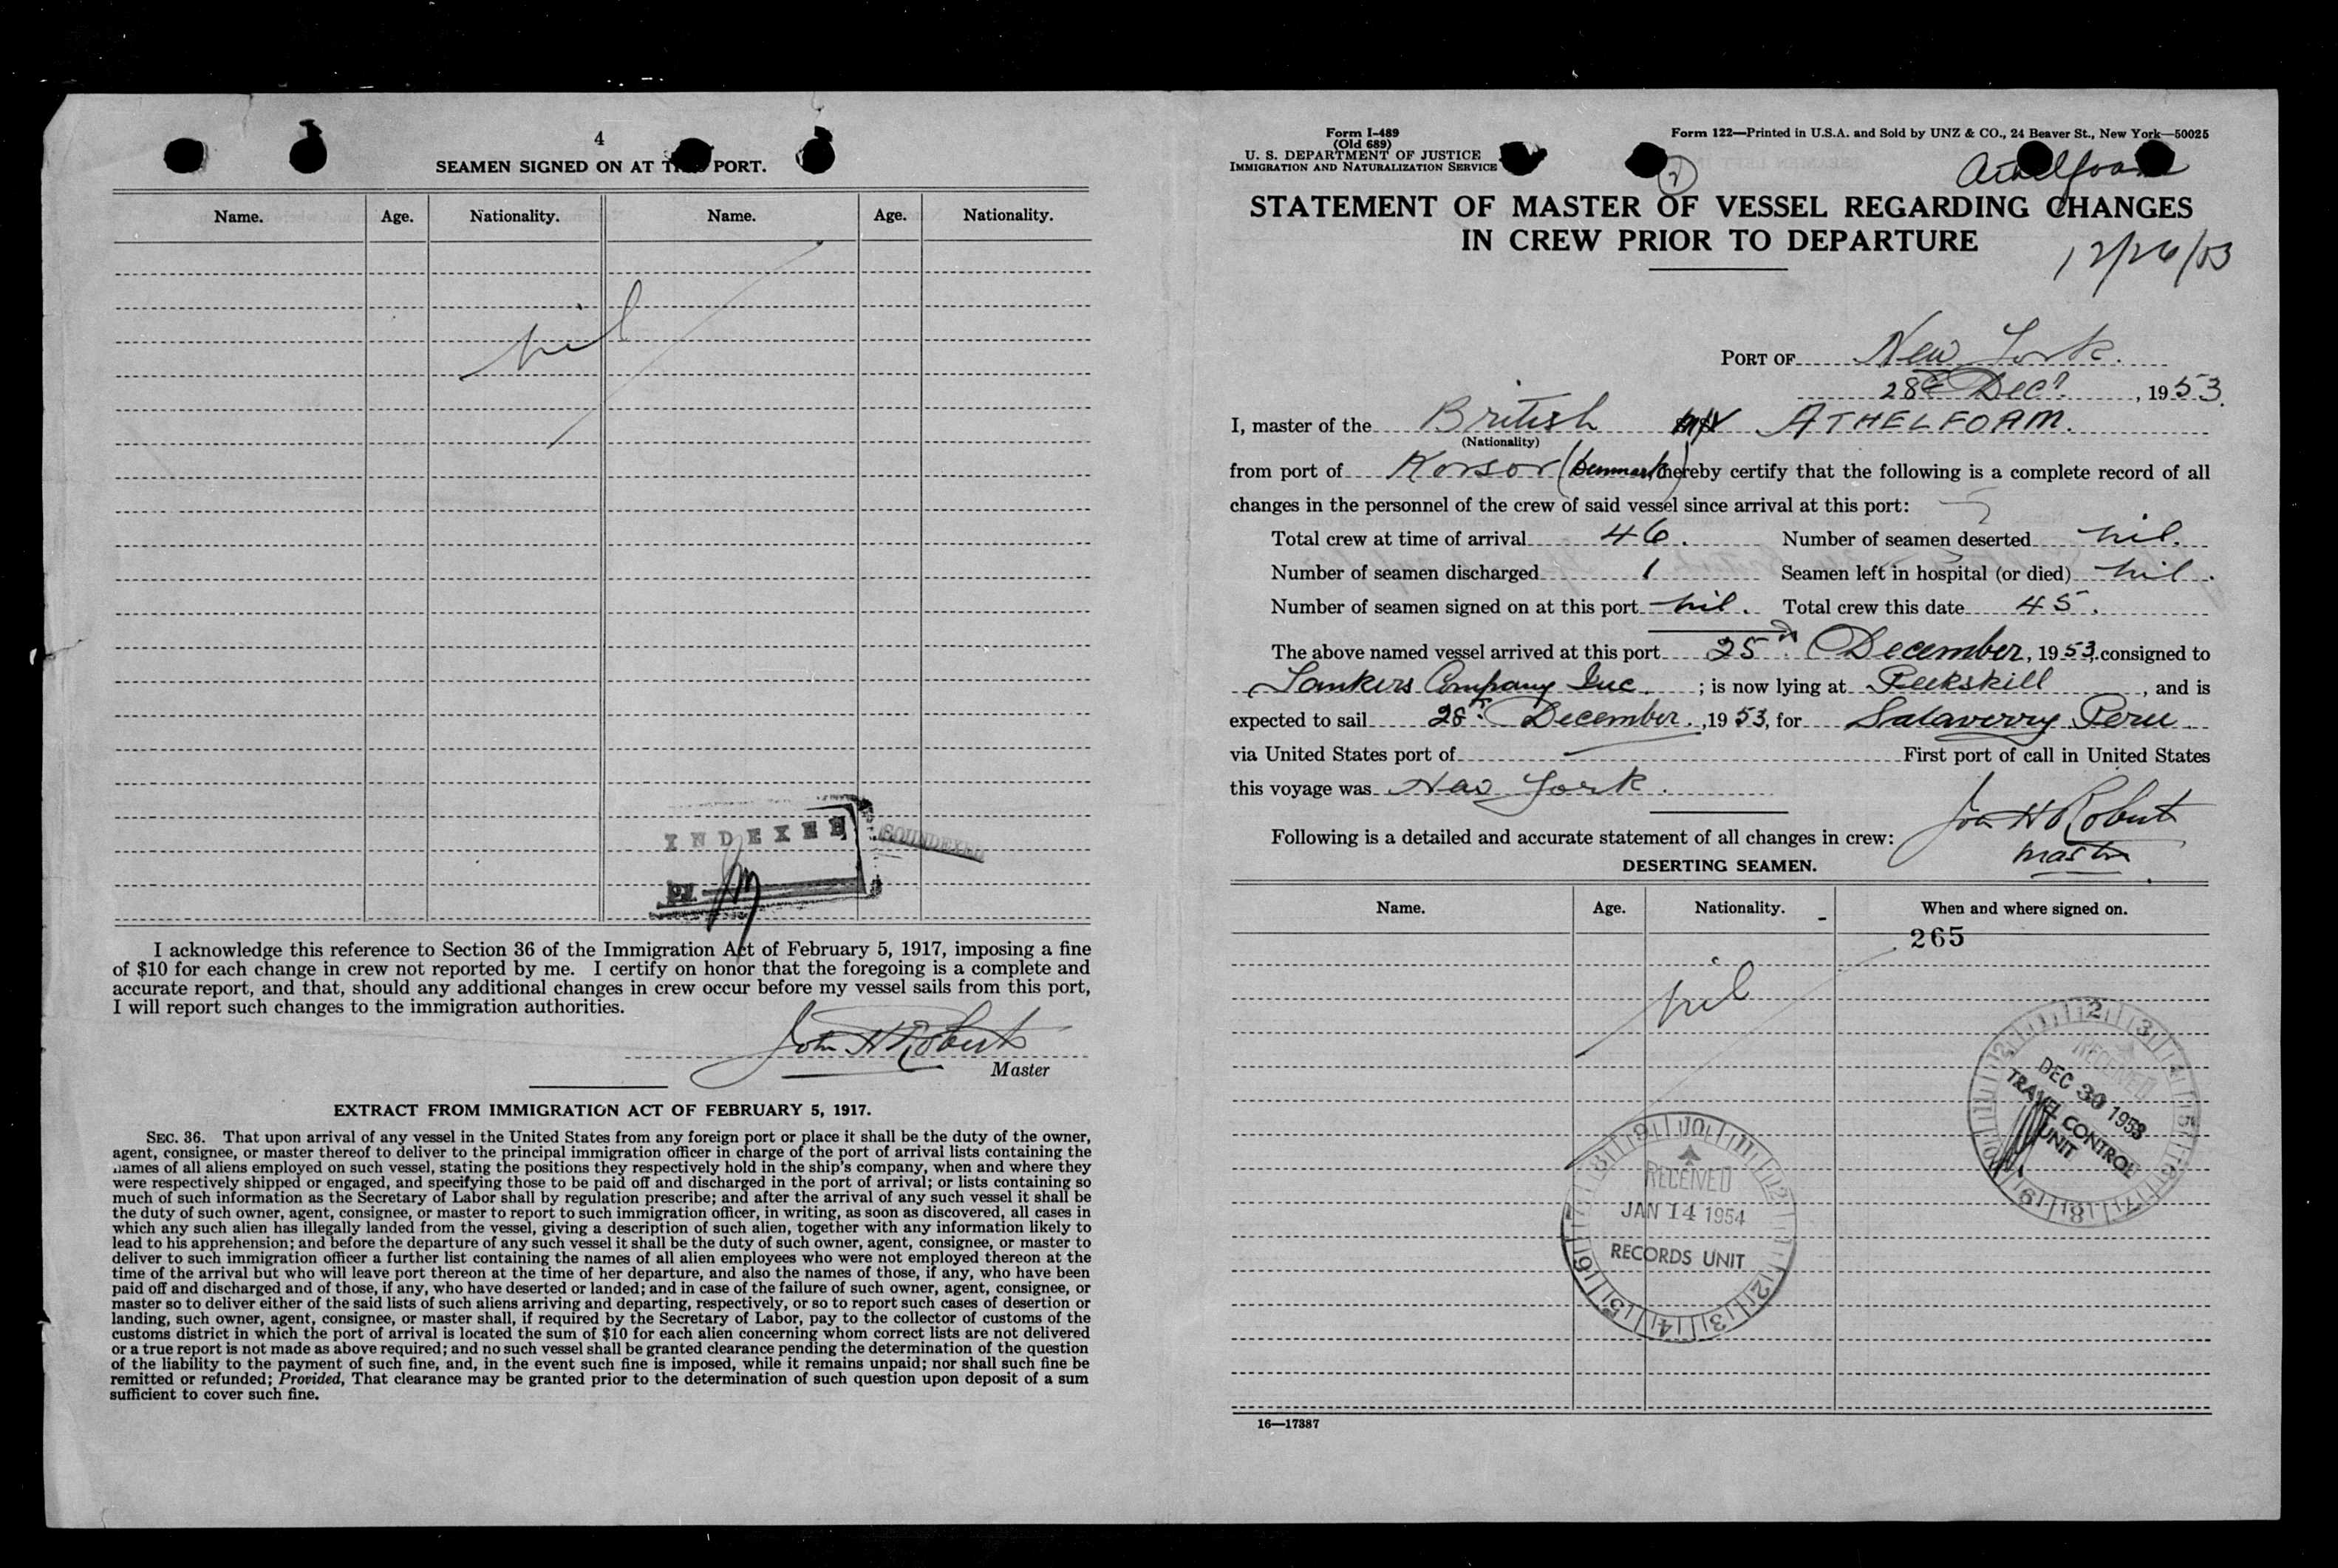 4
SEAMEN SIGNED ON AT THIS PORT.
Name. Age. Nationality. Name. Age. Nationality.
nil
INDEXED
SOUNDEXED
BY
I acknowledge this reference to Section 36 of the Immigration Act of February 5, 1917, imposing a fine
of $10 for each change in crew not reported by me. I certify on honor that the foregoing is a complete and
accurate report, and that, should any additional changes in crew occur before my vessel sails from this port,
I will report such changes to the immigration authorities.
John H Roberts
Master
EXTRACT FROM IMMIGRATION ACT OF FEBRUARY 5, 1917.
SEC. 36. That upon arrival of any vessel in the United States from any foreign port or place it shall be the duty of the owner,
agent, consignee, or master thereof to deliver to the principal immigration officer in charge of the port of arrival lists containing the
names of all aliens employed on such vessel, stating the positions they respectively hold in the ship's company, when and where they
were respectively shipped or engaged, and specifying those to be paid off and discharged in the port of arrival; or lists containing so
much of such information as the Secretary of Labor shall by regulation prescribe; and after the arrival of any such vessel it shall be
the duty of such owner, agent, consignee, or master to report to such immigration officer, in writing, as soon as discovered, all cases in
which any such alien has illegally landed from the vessel, giving a description of such alien, together with any information likely to
lead to his apprehension; and before the departure of any such vessel it shall be the duty of such owner, agent, consignee, or master to
deliver to such immigration officer a further list containing the names of all alien employees who were not employed thereon at the
time of the arrival but who will leave port thereon at the time of her departure, and also the names of those, if any, who have been
paid off and discharged and of those, if any, who have deserted or landed; and in case of the failure of such owner, agent, consignee, or
master so to deliver either of the said lists of such aliens arriving and departing, respectively, or so to report such cases of desertion or
landing, such owner, agent, consignee, or master shall, if required by the Secretary of Labor, pay to the collector of customs of the
customs district in which the port of arrival is located the sum of $10 for each alien concerning whom correct lists are not delivered
or a true report is not made as above required; and no such vessel shall be granted clearance pending the determination of the question
of the liability to the payment of such fine, and, in the event such fine is imposed, while it remains unpaid; nor shall such fine be
remitted or refunded; Provided, That clearance may be granted prior to the determination of such question upon deposit of a sum
sufficient to cover such fine.
Form I-489
(Old 689)
U. S. DEPARTMENT OF JUSTICE
IMMIGRATION AND NATURALIZATION SERVICE
Form 122—Printed in U.S.A. and Sold by UNZ & CO., 24 Beaver St., New York—50025
2
Athelfoam
STATEMENT OF MASTER OF VESSEL REGARDING CHANGES
IN CREW PRIOR TO DEPARTURE
12/26/53
PORT OF New York.
28th Decr., 1953.
I, master of the British M/V ATHELFOAM.
(Nationality)
from port of Korsor (Denmark) hereby certify that the following is a complete record of all
changes in the personnel of the crew of said vessel since arrival at this port:
Total crew at time of arrival 46. Number of seamen deserted nil.
Number of seamen discharged 1 Seamen left in hospital (or died) nil.
Number of seamen signed on at this port nil. Total crew this date 45.
The above named vessel arrived at this port 25th December, 1953, consigned to
Tankers Company Inc.; is now lying at Peekskill, and is
expected to sail 28th December., 1953, for Salaverry Peru
via United States port of First port of call in United States
this voyage was New York.
John H Roberts
Master
Following is a detailed and accurate statement of all changes in crew:
DESERTING SEAMEN.
Name. Age. Nationality. When and where signed on.
265
nil
RECEIVED
DEC 30 1953
TRAVEL CONTROL
UNIT
RECEIVED
JAN 14 1954
RECORDS UNIT
16—17387